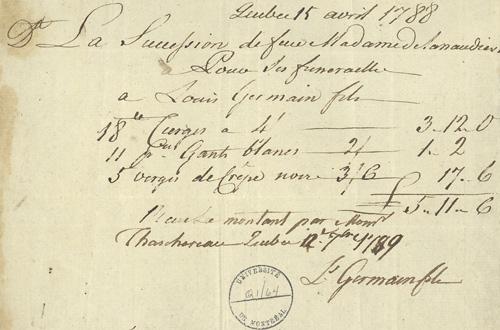 Quebec 15 avril 1788
Dt La Sucession de feue Madame de Lanaudiere
Pour ses funeraille
a Louis Germain fils
18 lb Cierges a 4/ 3..12..0
11 pres Gants blancs 2/ 1..2
5 verges de Crêpe noire 3/6 17..6
£ 5..11..6
Reçu le montant par Monsr
Thaschereau Quebec 7bre 1789
Ls Germain fils
UNIVERSITÉ
DE MONTRÉAL